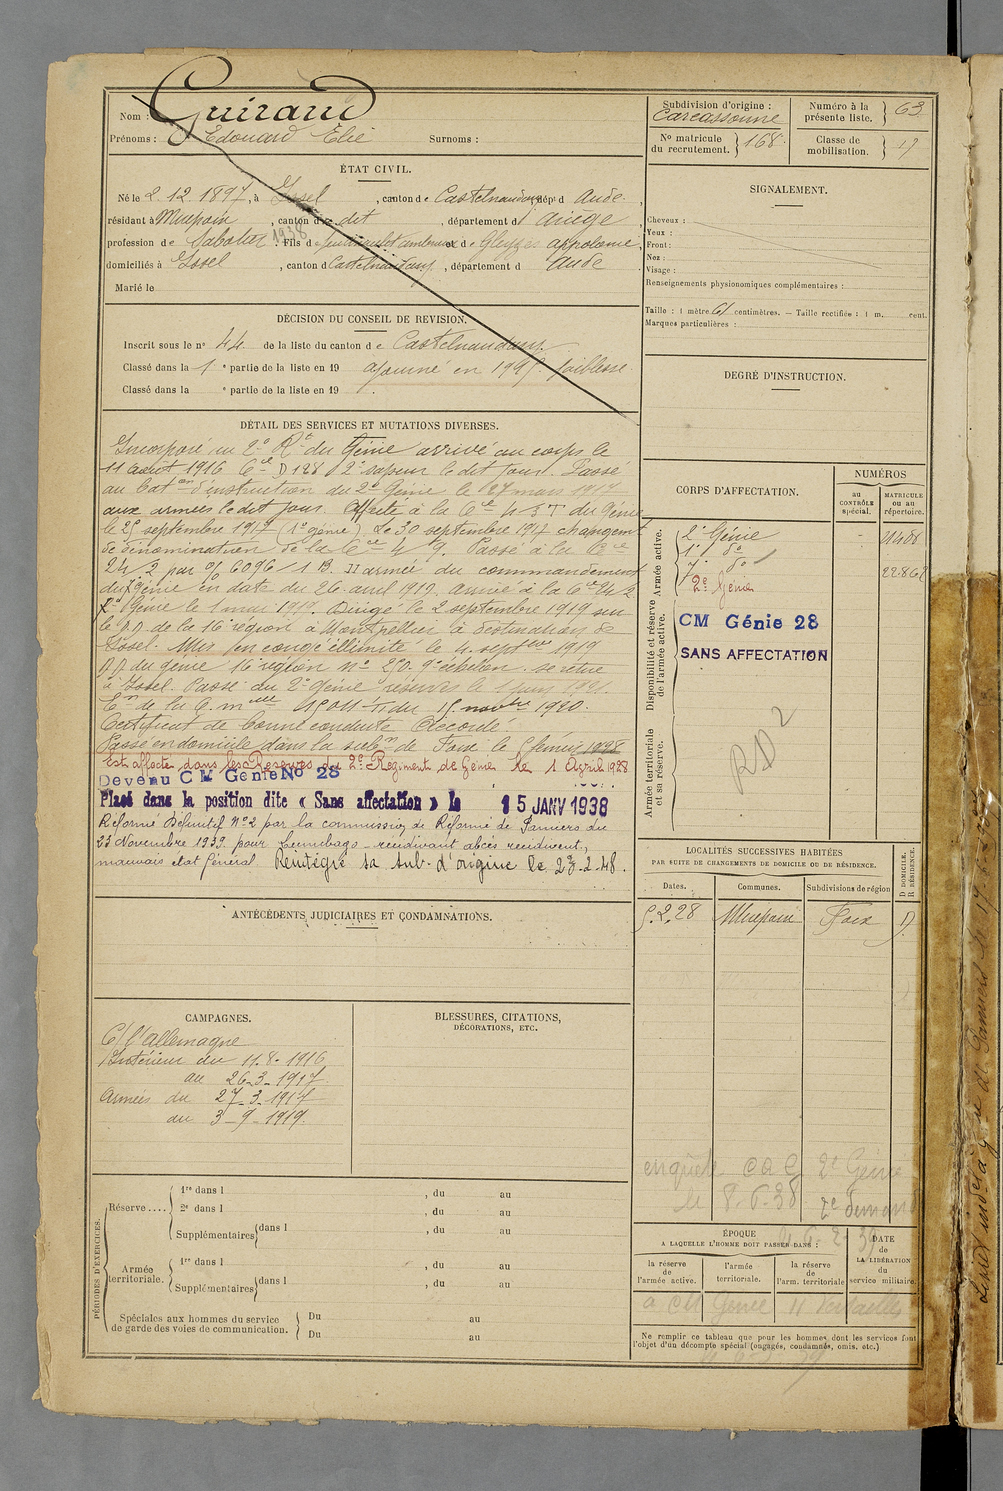 Nom : Guiraud
Prénoms : Edouard Elie Surnoms :
Subdivision d'origine : Carcassonne
Numéro à la présente liste. 63
No matricule du recrutement. 168
Classe de mobilisation. 17
ÉTAT CIVIL.
Né le 2.12.1897, à Issel, canton de Castelnaudary, dép d Aude.
résidant à Mirepoix, canton de dit, département d'Ariège,
profession de Sabotier 1938. Fils de et de appolonie,
domiciliés à Issel, canton d Castelnaudary, département d Aude
Marié le
DÉCISION DU CONSEIL DE REVISION.
Inscrit sous le no 44 de la liste du canton de Castelnaudary.
Classé dans la 1 e partie de la liste en 19 ajourné en faiblesse.
Classé dans la e partie de la liste en 19
SIGNALEMENT.
Cheveux :
Yeux :
Front :
Nez :
Visage :
Renseignements physionomiques complémentaires :
Taille : 1 mètre 61 centimètres. — Taille rectifiée : 1 m. cent.
Marques particulières :
DEGRÉ D'INSTRUCTION.
DÉTAIL DES SERVICES ET MUTATIONS DIVERSES.
Incorporé au 2e Rt du Génie arrivé au corps le
11 août 1916 Cie D 128 2e sapeur le dit jour. Passé
au Bat on d'instruction du 2e Génie le 27 mars 1917
aux armées le dit jour. Affecté à la Cie 4/3 T du Génie
le 25 septembre 1917 (1er génie). Le 30 septembre 1917 changemt
de dénomination de la Cie 4/9. Passé à la Cie
24/2 par o/ 6096/1 B. II armée du commandement
du génie en date du 26 avril 1919. Arrivé à la Cie 24/2
Génie le 1 mai 1919. Dirigé le 2 septembre 1919 sur
le D.D. de la 16e région à Montpellier à destination de
Issel. Mis en congé illimité le 4 septbre 1919
D.D. du génie 16e région no 250. 9e échelon. se retire
à Issel. Passé au 2e Génie réserves le 1 juin 1921.
du 15 novbre 1920.
Certificat de bonne conduite Accordé.
Passé en domicile dans la subon de Foix le 5 février 1928
Est affecté dans les Réserves du 2e Régiment de Génie le 1 Avril 1928
Devenu CM Génie No 28
Placé dans la position dite « Sans affectation » le 15 JANV 1938
Réformé Définitif no 2 par la commission de Réforme de Pamiers du
23 Novembre 1939 pour Lumbago récidivant abcès récidivent,
mauvais état général Réintégré sa sub. d'origine le 23-2-48.
CORPS D'AFFECTATION.
NUMÉROS
au CONTRÔLE spécial.
MATRICULE ou au répertoire.
Armée active.
2e Génie - 11408
1er do
7e do 22862
2e Génie
Disponibilité et réserve de l'armée active.
CM Génie 28
SANS AFFECTATION
Armée territoriale et sa réserve.
RD 2
LOCALITÉS SUCCESSIVES HABITÉES
PAR SUITE DE CHANGEMENTS DE DOMICILE OU DE RÉSIDENCE.
Dates. Communes. Subdivisions de région D DOMICILE. R RÉSIDENCE.
5.2.28 Mirepoix Foix D.
ANTÉCÉDENTS JUDICIAIRES ET CONDAMNATIONS.
CAMPAGNES.
C/ l'allemagne
Intérieur du 11.8.1916
au 26-3-1917.
Armées du 27-3-1917
au 3-9-1919.
BLESSURES, CITATIONS,
DÉCORATIONS, ETC.
enquête 2e Génie
le 8-6-38
PÉRIODES D'EXERCICES.
Réserve....
1re dans l , du au
2e dans l , du au
Supplémentaires dans l , du au
Armée territoriale.
1re dans l , du au
Supplémentaires dans l , du au
Spéciales aux hommes du service de garde des voies de communication.
Du au
Du au
ÉPOQUE
A LAQUELLE L'HOMME DOIT PASSER DANS :
la réserve de l'armée active.
l'armée territoriale.
la réserve de l'arm. territoriale
DATE de LA LIBÉRATION du service militaire.
a CM Génie 11 Versailles
Ne remplir ce tableau que pour les hommes dont les services font
l'objet d'un décompte spécial (engagés, condamnés, omis, etc.)